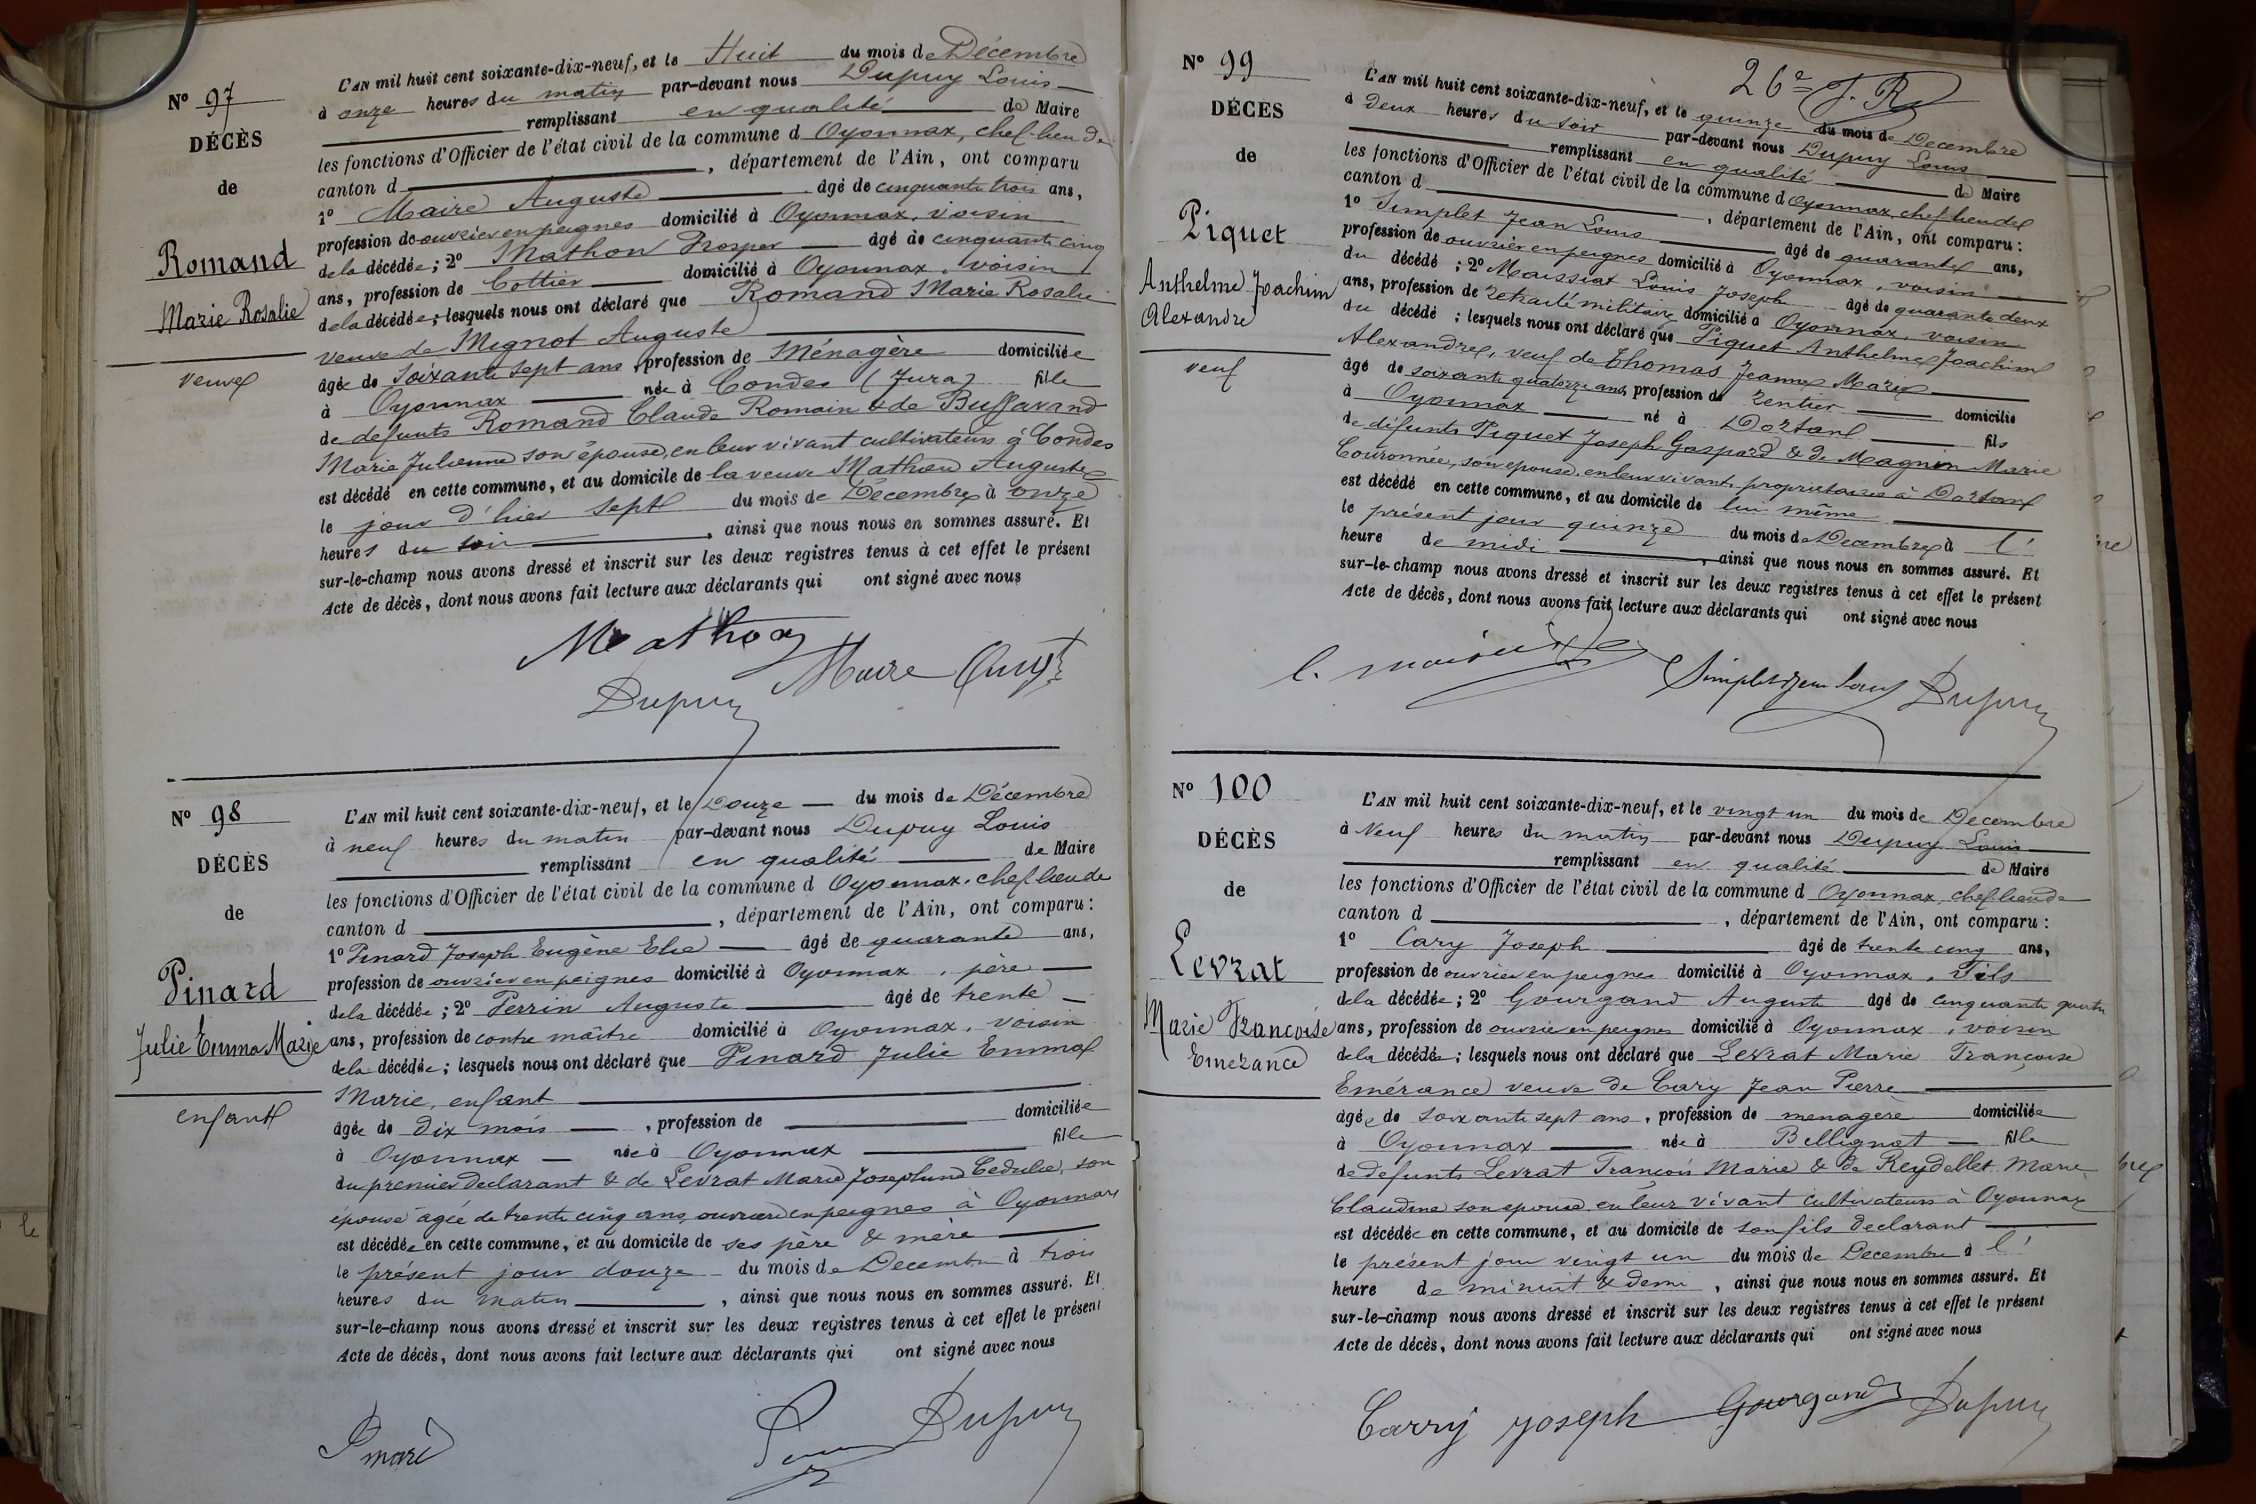 N° 97
DÉCÈS
de
Romand
Marie Rosalie
veuve
L'AN mil huit cent soixante-dix-neuf, et le Huit du mois de Décembre
à onze heures du matin par-devant nous Dupuy Louis
remplissant en qualité de Maire
les fonctions d'Officier de l'état civil de la commune d Oyonnax, chef-lieu de
canton d , département de l'Ain, ont comparu
1° Maire Auguste âgé de cinquante trois ans,
profession de ouvrier en peignes domicilié à Oyonnax, voisin
de la décédée; 2° Mathon Prosper âgé de cinquante cinq
ans, profession de Cottier domicilié à Oyonnax, voisin
de la décédée; lesquels nous ont déclaré que Romand Marie Rosalie
veuve de Mignot Auguste
âgée de Soixante sept ans, profession de Ménagère domiciliée
à Oyonnax née à Condes (Jura) fille
de defunts Romand Claude Romain & de Buffavand
Marie Julienne son épouse, en leur vivant cultivateurs à Condes
est décédé en cette commune, et au domicile de la veuve Mathon Auguste
le jour d'hier sept du mois de Décembre à onze
heures du soir , ainsi que nous nous en sommes assuré. Et
sur-le-champ nous avons dressé et inscrit sur les deux registres tenus à cet effet le présent
Acte de décès, dont nous avons fait lecture aux déclarants qui ont signé avec nous
Mathon
Maire Augte
Dupuy
N° 98
DÉCÈS
de
Pinard
Julie Emma Marie
enfant
L'AN mil huit cent soixante-dix-neuf, et le Douze du mois de Décembre
à neuf heures du matin par-devant nous Dupuy Louis
remplissant en qualité de Maire
les fonctions d'Officier de l'état civil de la commune d Oyonnax, chef lieu de
canton d , département de l'Ain, ont comparu:
1° Pinard Joseph Eugène Elie âgé de quarante ans,
profession de ouvrier en peignes domicilié à Oyonnax, père
de la décédée; 2° Perrin Auguste âgé de trente
ans, profession de contre maître domicilié à Oyonnax, voisin
de la décédée; lesquels nous ont déclaré que Pinard Julie Emma
Marie, enfant
âgée de dix mois , profession de domiciliée
à Oyonnax née à Oyonnax fille
du premier declarant & de Levrat Marie Josephine Cedulie, son
épouse agée de trente cinq ans, ouvrière en peignes à Oyonnax
est décédée en cette commune, et au domicile de ses père & mère
le présent jour douze du mois de Decembre à trois
heures du matin , ainsi que nous nous en sommes assuré. Et
sur-le-champ nous avons dressé et inscrit sur les deux registres tenus à cet effet le présent
Acte de décès, dont nous avons fait lecture aux déclarants qui ont signé avec nous
Pinard
Dupuy
26e
N° 99
DÉCES
de
Piquet
Anthelme Joachim
Alexandre
veuf
L'AN mil huit cent soixante-dix-neuf, et le quinze du mois de Décembre
à Deux heures du soir par-devant nous Dupuy Louis
remplissant en qualité de Maire
les fonctions d'Officier de l'état civil de la commune d Oyonnax, chef lieu de
canton d , département de l'Ain, ont comparu:
1° Simplet Jean Louis âgé de quarante ans,
profession de ouvrier en peignes domicilié à Oyonnax, voisin
du décédé; 2° Maissiat Louis Joseph âgé de quarante deux
ans, profession de retraité militaire domicilié à Oyonnax, voisin
du décédé; lesquels nous ont déclaré que Piquet Anthelme Joachim
Alexandre, veuf de Thomas Jeanne Marie
âgé de soixante quatorze ans, profession de rentier domicilié
à Oyonnax né à Dortan fils
de défunts Piquet Joseph Gaspard & de Magnin Marie
Couronnée, son epouse, en leur vivant propriétaires à Dortan
est décédé en cette commune, et au domicile de lui même
le présent jour quinze du mois de Decembre à l'
heure de midi , ainsi que nous nous en sommes assuré. Et
sur-le-champ nous avons dressé et inscrit sur les deux registres tenus à cet effet le présent
Acte de décès, dont nous avons fait lecture aux déclarants qui ont signé avec nous
Simplet Jean Louis Dupuy
N° 100
DÉCÈS
de
Levrat
Marie Francoise
Emerance
L'AN mil huit cent soixante-dix-neuf, et le vingt un du mois de Decembre
à Neuf heures du matin par-devant nous Dupuy Louis
remplissant en qualité de Maire
les fonctions d'Officier de l'état civil de la commune d Oyonnax, chef lieu de
canton d , département de l'Ain, ont comparu:
1° Cary Joseph âgé de trente cinq ans,
profession de ouvrier en peignes domicilié à Oyonnax, Fils
de la décédée; 2° Gourgand Auguste âgé de cinquante quatre
ans, profession de ouvrier en peignes domicilié à Oyonnax, voisin
de la décédée; lesquels nous ont déclaré que Levrat Marie Françoise
Emérance veuve de Cary Jean Pierre
âgée de soixante sept ans, profession de menagère domiciliée
à Oyonnax née à Bellignat fille
de defunts Levrat François Marie & de Reydellet Marie
Claudine son epouse en leur vivant cultivateurs à Oyonnax
est décédée en cette commune, et au domicile de son fils declarant
le présent jour vingt un du mois de Decembre à l'
heure de minuit & demi , ainsi que nous nous en sommes assuré. Et
sur-le-champ nous avons dressé et inscrit sur les deux registres tenus à cet effet le présent
Acte de décès, dont nous avons fait lecture aux déclarants qui ont signé avec nous
Carry joseph Gourgand Dupuy